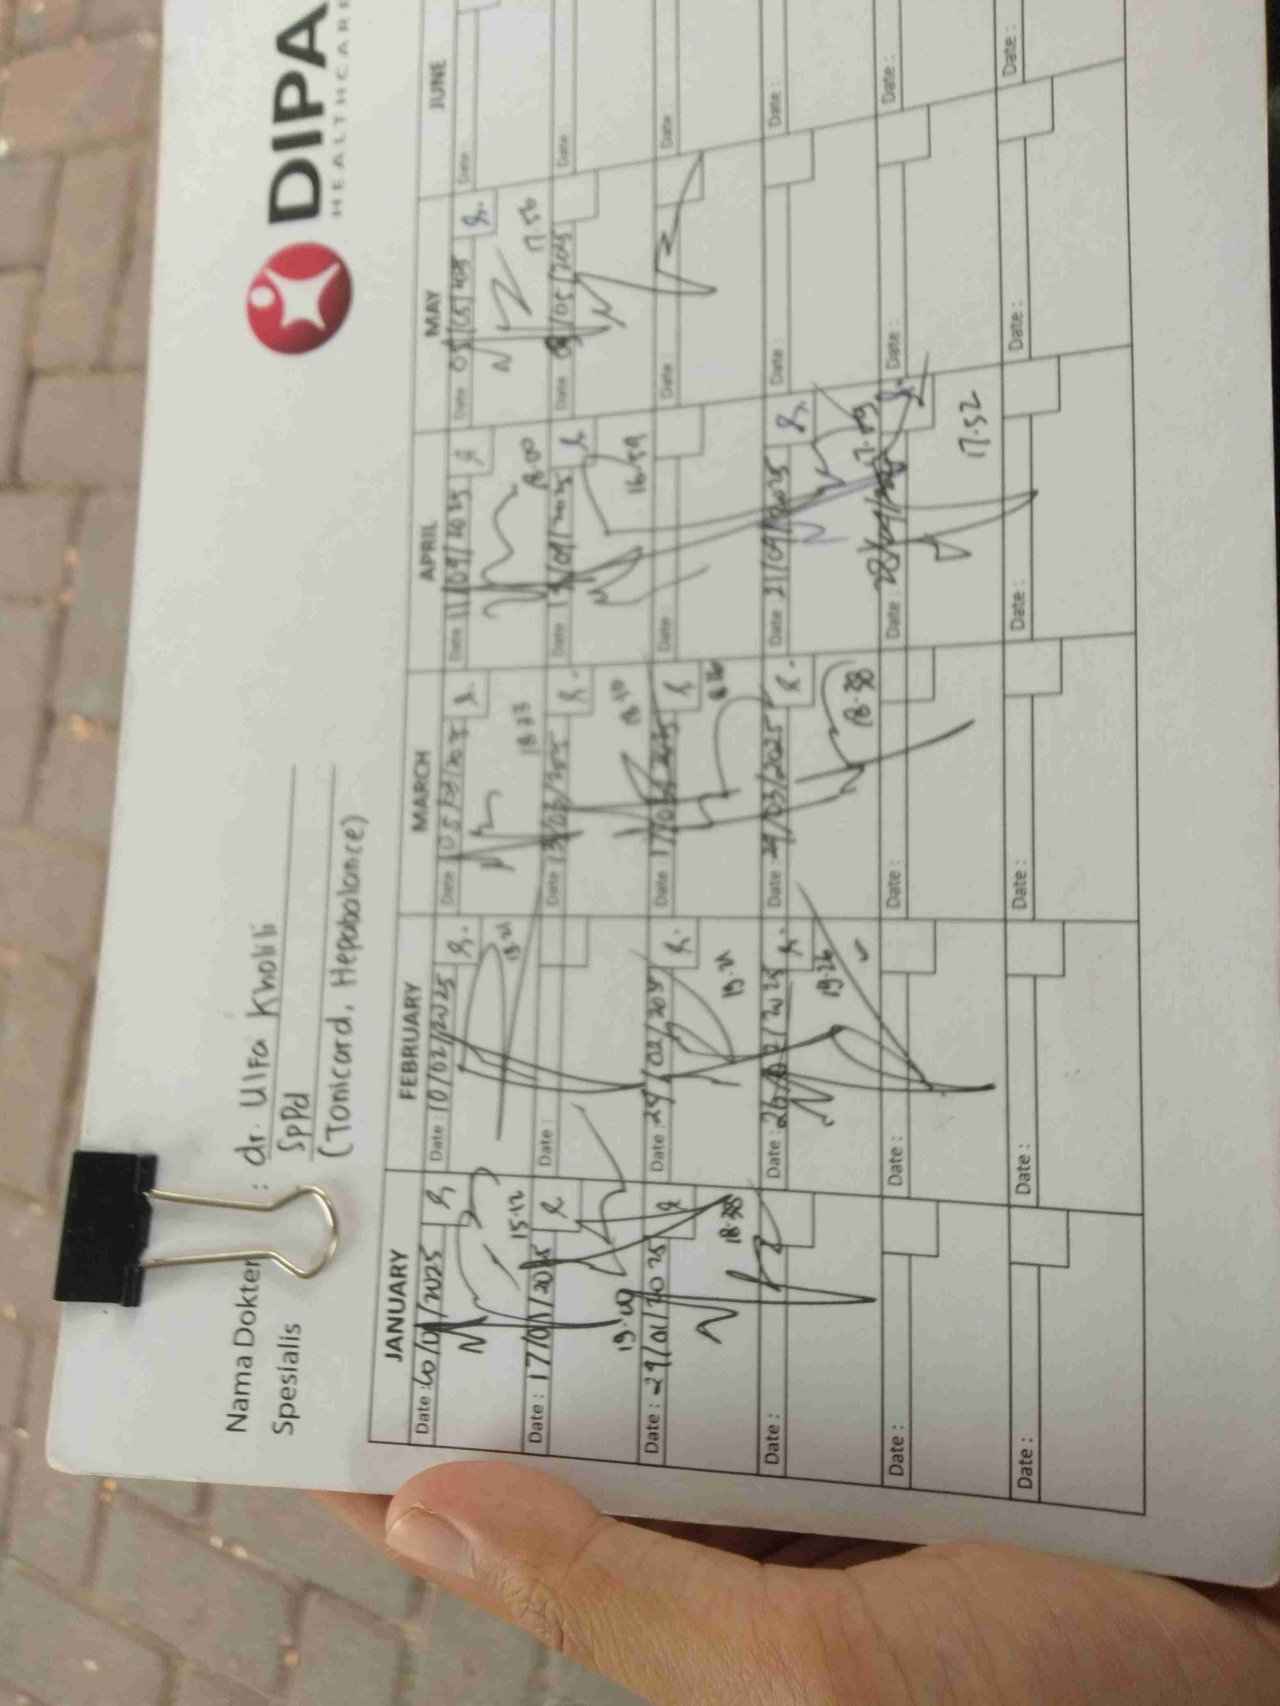 DIPA
HEALTHCARE
Nama Dokter : dr. Ulfa Kholili
Spesialis SpPd
(Tonicard, Hepabalance)
JANUARY FEBRUARY MARCH APRIL MAY JUNE
Date : Date : 10/02/2025 Date Date 11/04/2025 Date 05/05/2025 Date
15.12 18.23 18.00 17.56
Date : 17/01/2025 Date : Date 13/03/2025 Date Date 08/05/2025 Date
19.00 16.59
Date : 29/01/2025 Date : 24/02/2025 Date 17/03/2025 Date Date Date
18.38 19.21
Date : Date : 26/02/2025 Date : 24/03/2025 Date 21/04/2025 Date Date :
19.26 18.38 17.59
Date : Date : Date : Date : 28/04/2025 Date : Date :
17.52
Date : Date : Date : Date : Date : Date :